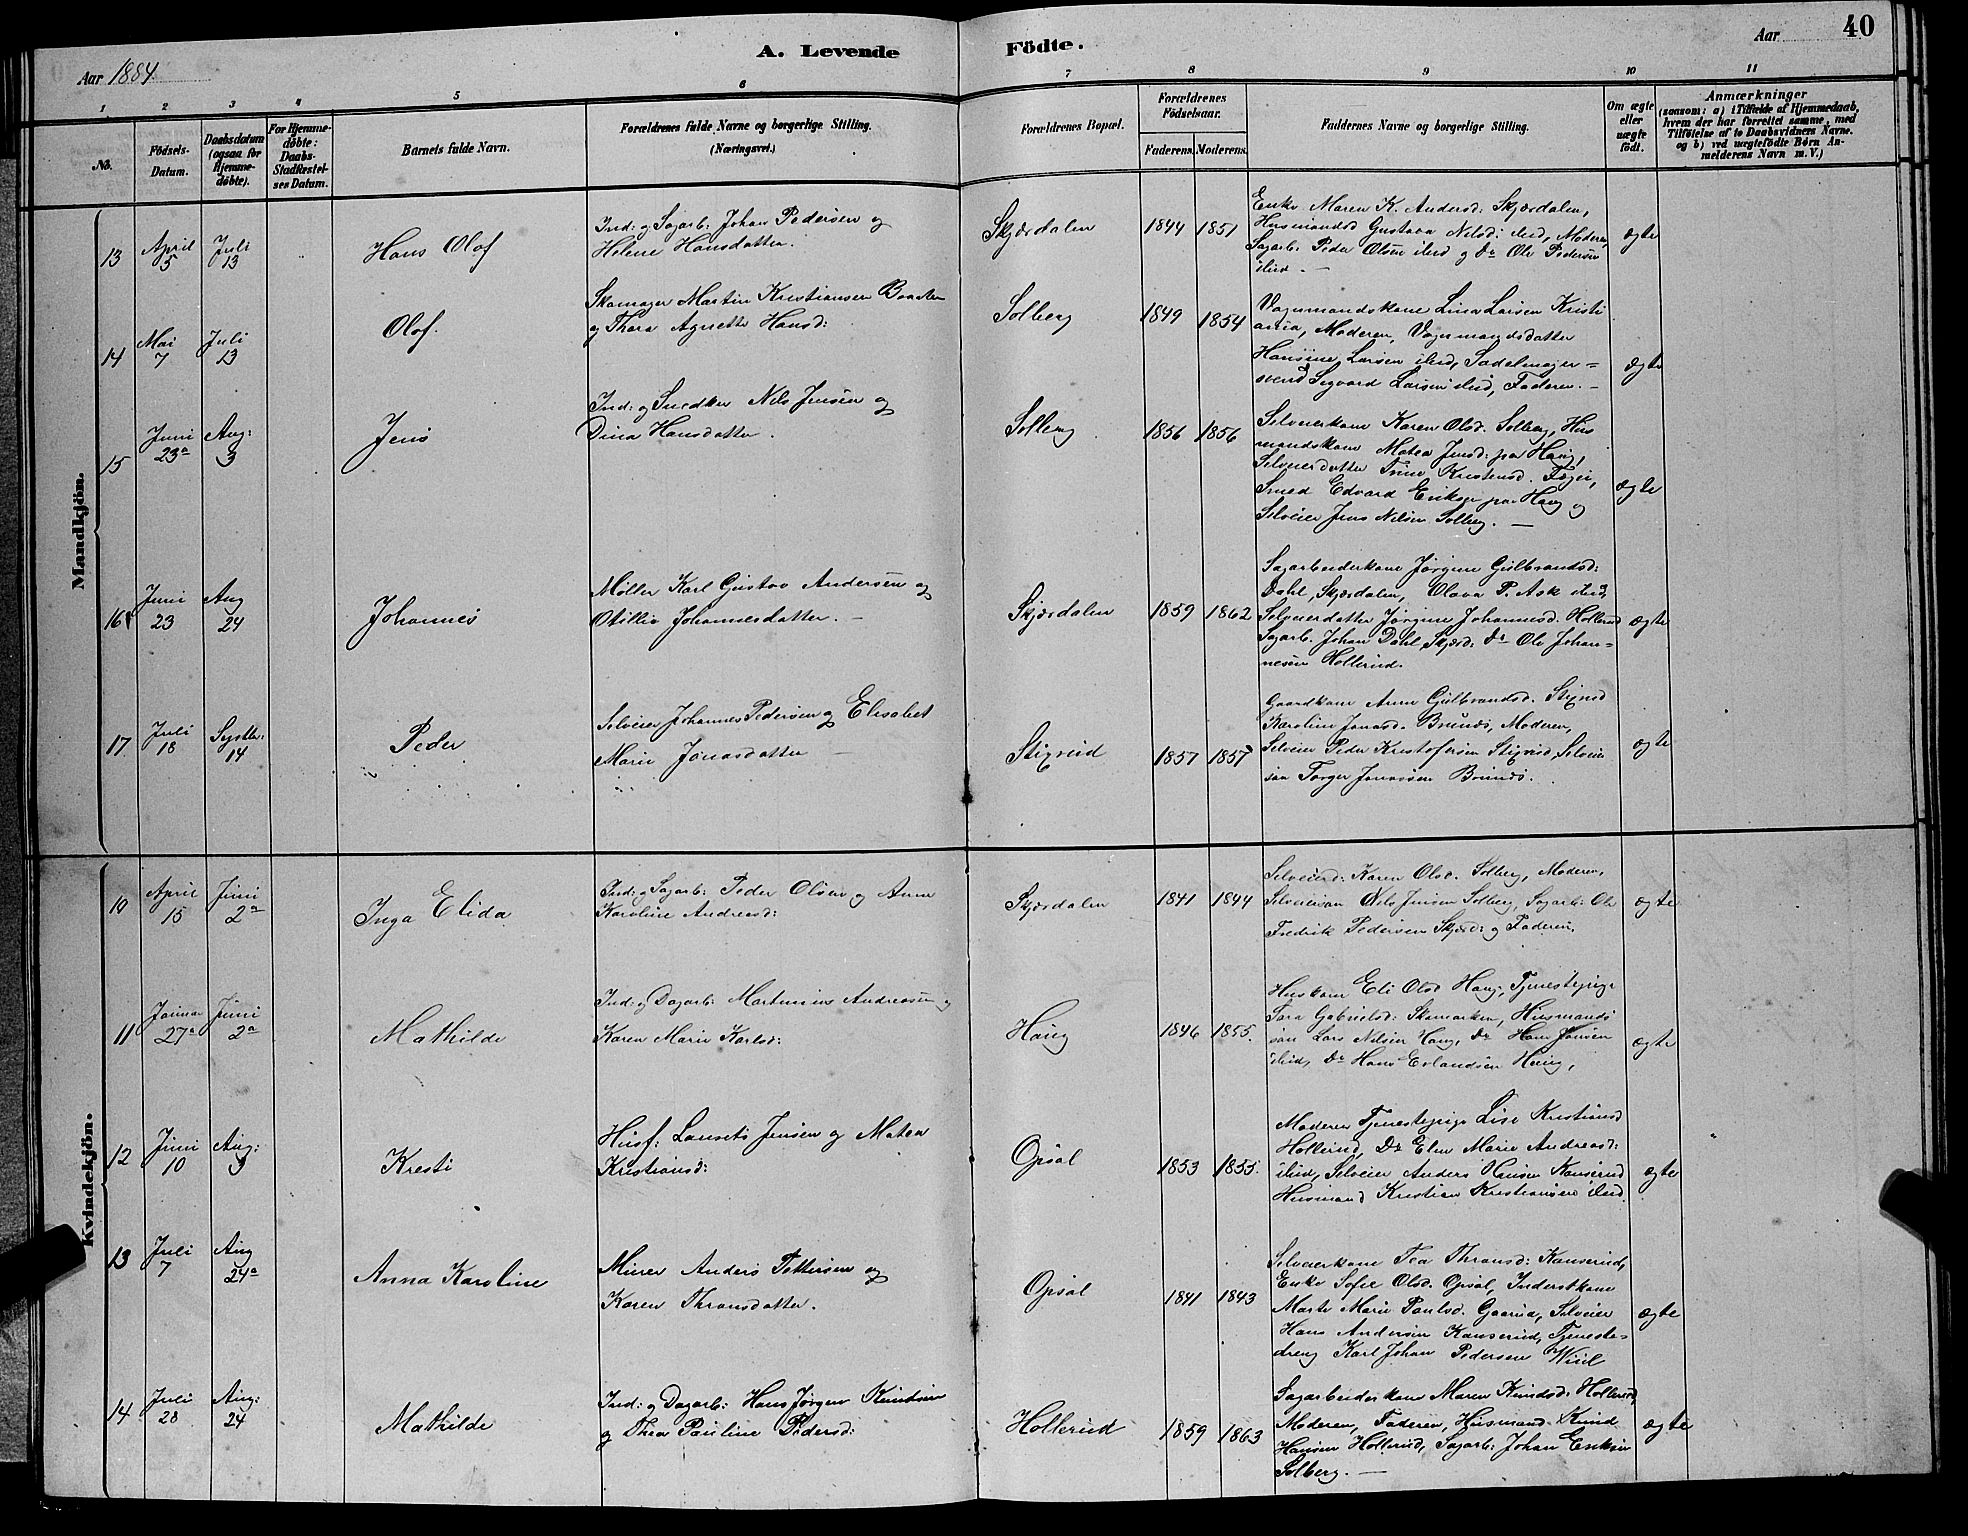 40
A. Levende Födte.
Aar 1884
Aar
1 2 3 4 5 6 7 8 9 10 11
No.
Födsels-Datum.
Daabsdatum (ogsaa for Hjemme-döbte).
For Hjemme-döbte: Daabs-Stadfæstelses Datum.
Barnets fulde Navn.
Forældrenes fulde Navne og borgerlige Stilling.
(Næringsvei.)
Forældrenes Bopæl.
Forældrenes Födselsaar.
Faderens. Moderens.
Faddernes Navne og borgerlige Stilling.
Om ægte eller uægte födt.
Anmærkninger
(saasom: a) i Tilfælde af Hjemmedaab,
hvem der har forrettet samme, med
Tilföielse af to Daabsvidners Navne.
og b) ved uægtefödte Börn An-
melderens Navn m.V.)
Mandkjön.
13 April 5 Juli 13
Hans Olof
Ind: og Sagarb: Johan Pedersen og
Helene Hansdatter.
Skjærdalen 1844 1851
Enke Maren K. Andersd: Skjærdalen,
Husmandsd Gustava Nilsd: ibid, Moderen,
Sagarb: Peder Olsen ibid og Do Ole Pedersen
ibid. —
ægte
14 Mai 7 Juli 13
Olof.
Skomager Martin Kristiansen
og Thora Agnethe Hansd:
Solberg 1849 1854
Vognmandskone Lina Larsen Kristi
ania, Moderen, Vognmandsdatter
Hansine Larsen ibid, Sadelmager=
svend Segvard Larsen ibid, Faderen. —
ægte
15 Juni 23a Aug: 3
Jens
Ind: og Snedker Nils Jensen og
Dina Hansdatter.
Solberg 1856 1856
Selveierkone Karen Olsd. Solberg, Hus
mandskone Matea Jensd: paa Haug,
Selveierdatter Trine Kristensd.
Smed Edvard Eriksen paa Haug og
Selveier Jens Nilsen Solberg. —
ægte
16 Juni 23 Aug 24
Johannes
Møller Karl Gustav Andersen og
Otillie Johannesdatter. —
Skjærdalen 1859 1862
Sagarbeiderkone Jørgine Gulbrandsd:
Dahl, Skjærdalen, Olava P. Ask ibid,
Selveierdatter Jørgine Johannesd. Hollerud
Sagarb. Johan Dahl, Skjærd: Do Ole Johan=
nesen Hollerud.
ægte
17 Juli 18 Septbr. 14
Peder
Selveier Johannes Pedersen og Elisabet
Marie Jonasdatter —
Stixrud 1857 1857
Gaardkone Anne Gulbrandsd. Stixrud
Karoline Jonasd. Brunæs, Moderen,
Selveier Peder Kristofersen Stixrud, Selveier
søn Torger Jonassen Brunæs.
ægte
Kvindekjön.
10 April 15 Juni 2a
Inga Elida
Ind: og Sagarb: Peder Olsen og Anne
Karoline Andreasd:
Skjærdalen 1841 1844
Selveierd: Karen Olsd. Solberg, Moderen,
Selveiersøn Nils Jensen Solberg, Sagarb: Ole
Fredrik Pedersen Skjærd: og Faderen.
ægte
11 Januar 27a Juni 2a
Mathilde
Ind: og Dagarb: Martinius Andreasen og
Karen Marie Karlsd:
Haug 1846 1855.
Huskone Eli Olsd Haug, Tjenestepige
Sara Gabrielsd: Skamarken, Husmands
søn Lars Nilsen Haug, Do Hans Jonsen
ibid, Do Hans Erlandsen Haug,
ægte
12 Juni 10 Aug: 3
Kresti
Husf: Laurits Jensen og Matea
Kristiansd:
Opsal 1853 1855.
Moderen Tjenestepige Lise Kristiansd
Hollerud, Do Elen Marie Andreasd:
ibid, Selveier Anders Hansen Kanserud
Husmand Kristian Kristiansen ibid.
ægte
13 Juli 7 Aug 24a
Anna Karoline
Murer Anders Pettersen og
Karen Thronsdatter.
Opsal 1841 1843
Selveierkone Tea Thronsd: Kanserud,
Enke Sofie Olsd. Opsal, Inderstkone
Marte Marie Paulsd. Selveier
Hans Andersen Kanserud, Tjeneste-
dreng Karl Johan Pedersen
ægte
14 Juli 28 Aug: 24
Mathilde
Ind: og Dagarb: Hans Jørgen Knudsen
og Thea Pauline Pedersd:
Hollerud 1859 1863
Sagarbeiderkone Maren Knudsd. Hollerud,
Moderen, Faderen, Husmand Knud
Hansen Hollerud, Sagarb: Johan Eriksen
Solberg. —
ægte